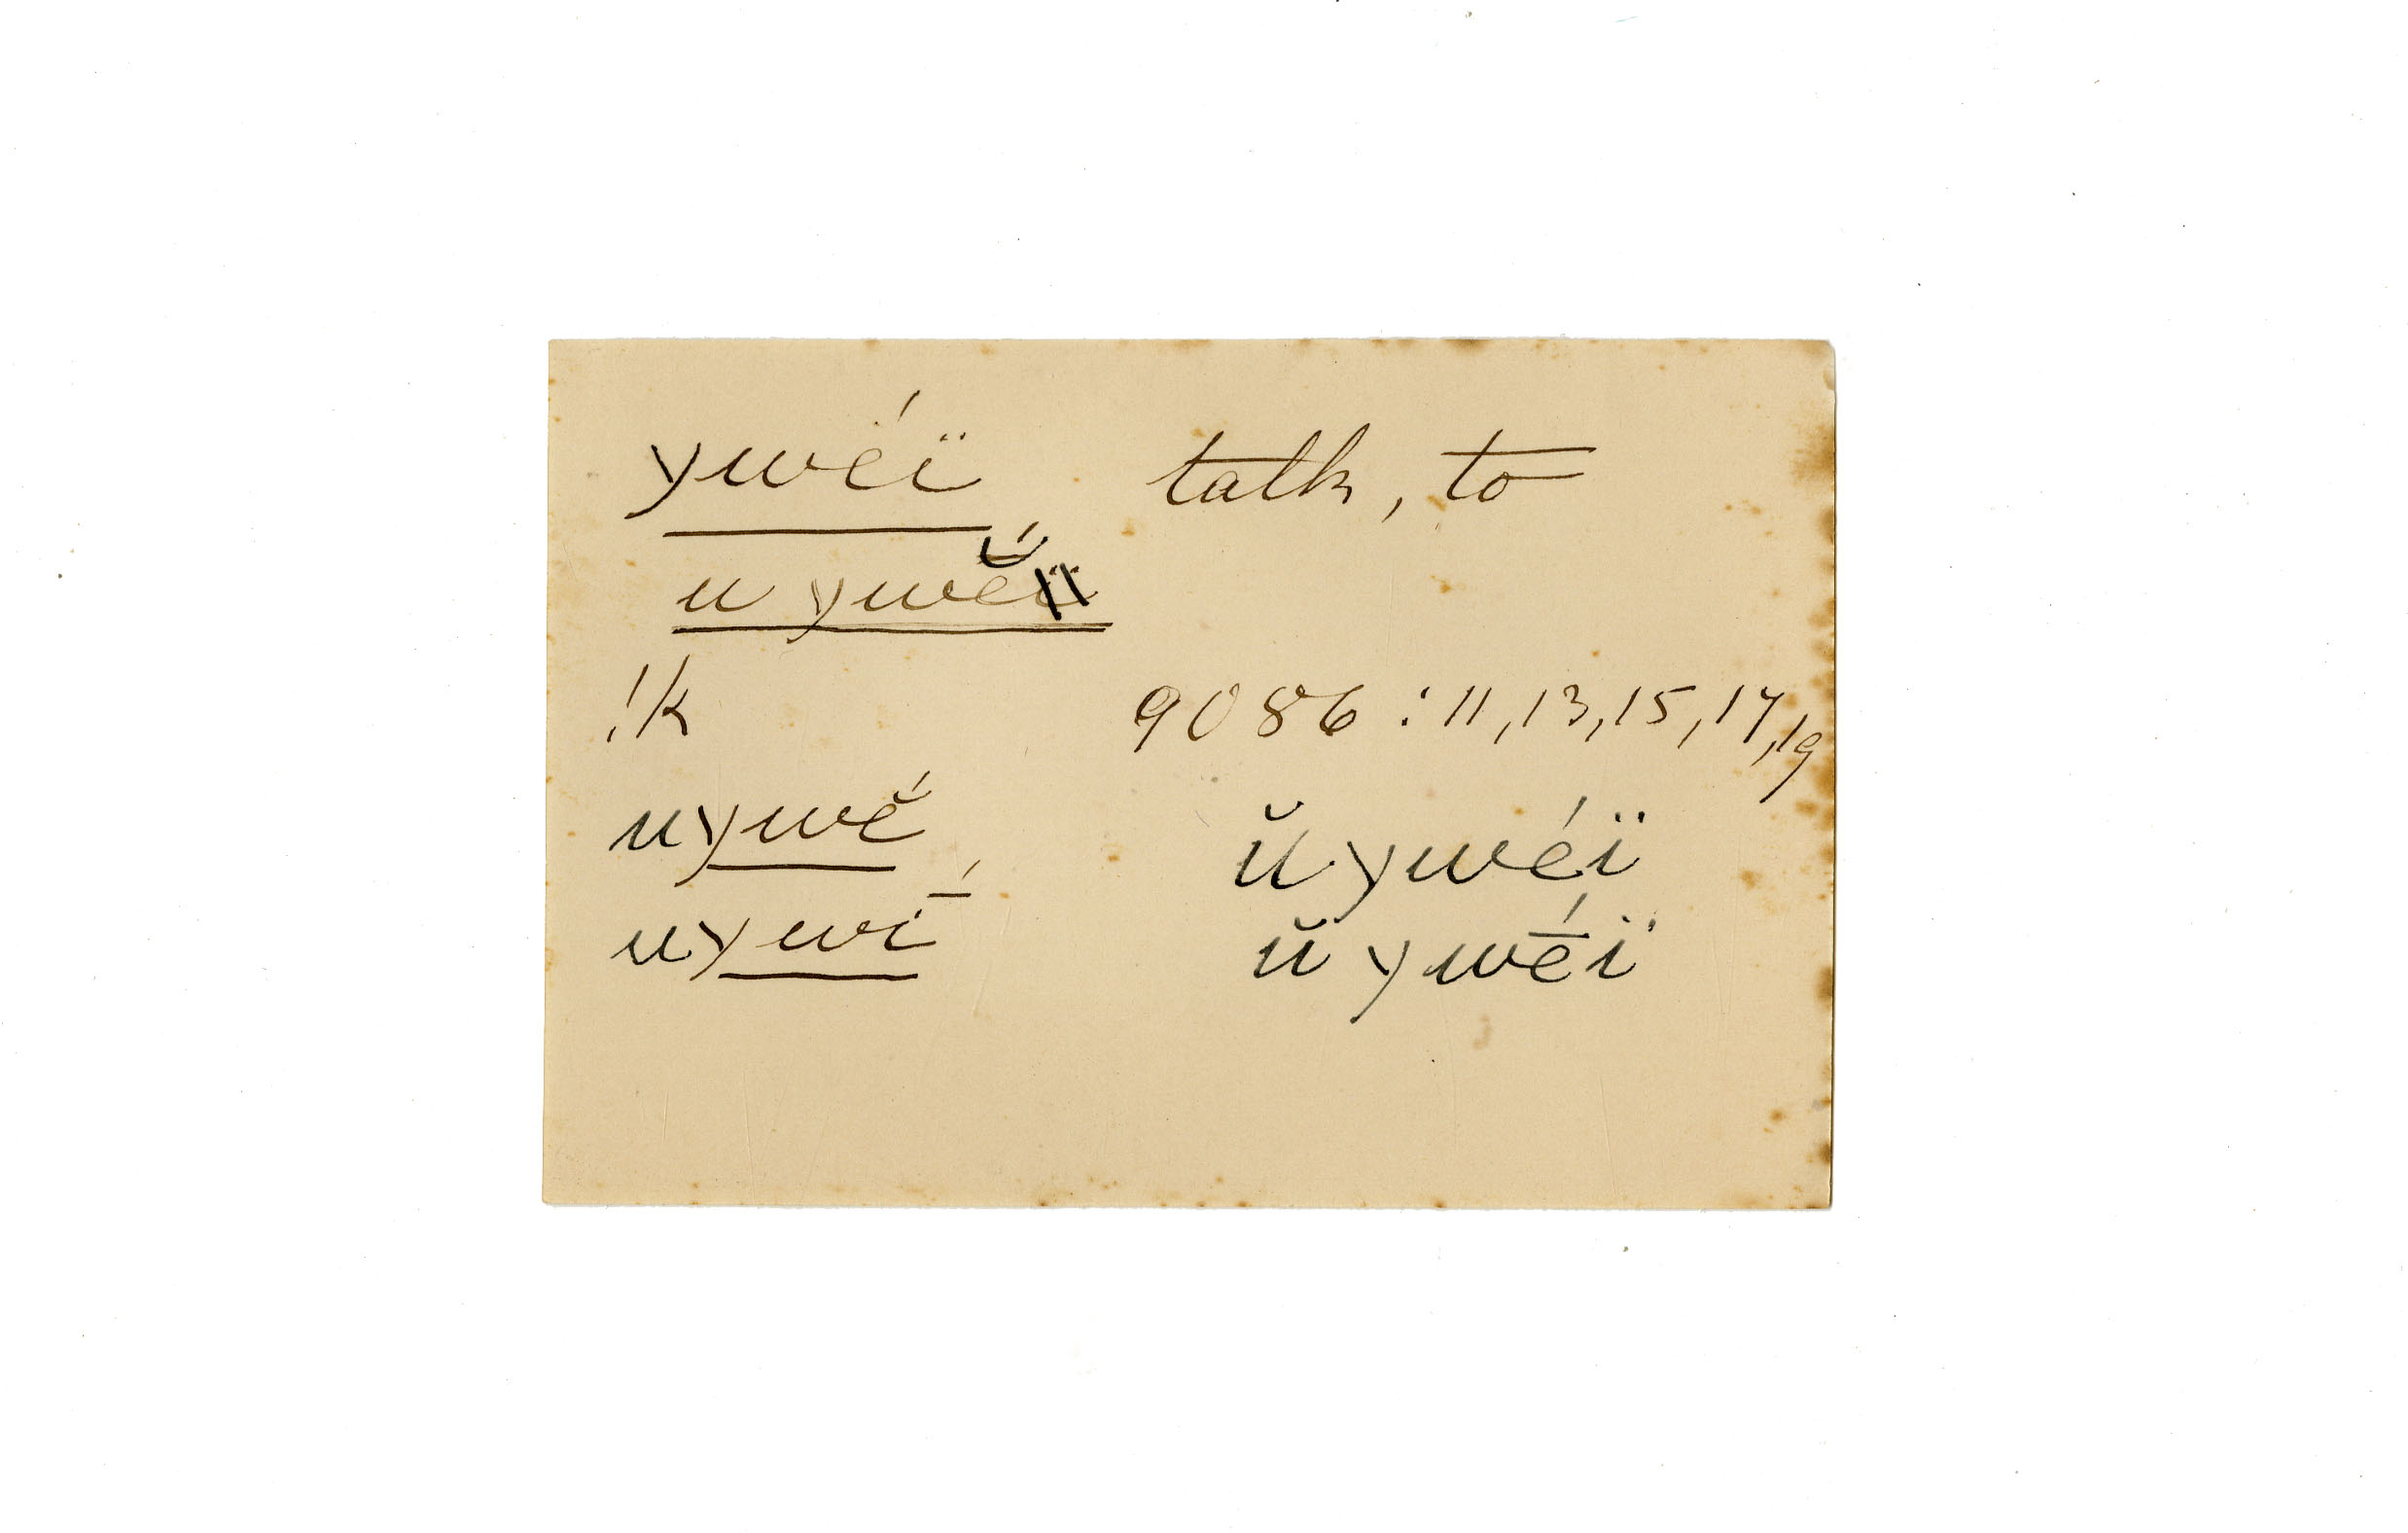 ywéï talk, to
u ywĕ́ï
!k 9086 : 11, 13, 15, 17, 19
uywĕ́ ŭywéï
uywī́ ŭywḗï